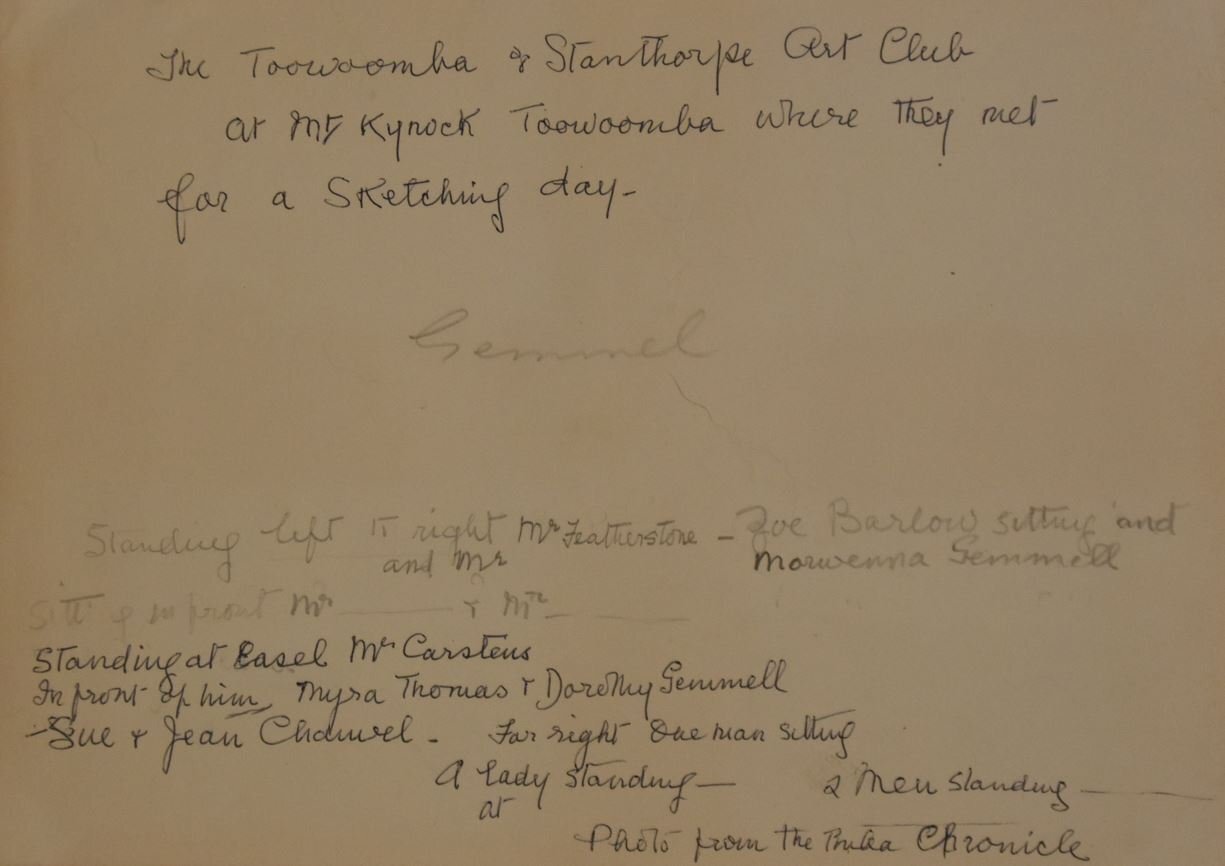 The Toowoomba & Stanthorpe Art Club
at Mt Kynock Toowoomba where they met
for a Sketching day -
Gemmel
Standing left to right Mr Featherstone - Zoe Barlow sitting and
and Mr Morwenna Gemmell
in front Mr ——— & Mr ———
Standing at Easel Mr Carstens
In front of him, Myra Thomas & Dorothy Gemmell
- Sue & Jean Chauvel - Far right One man sitting
A lady standing — 2 Men standing ———
at
Photo from the Chronicle